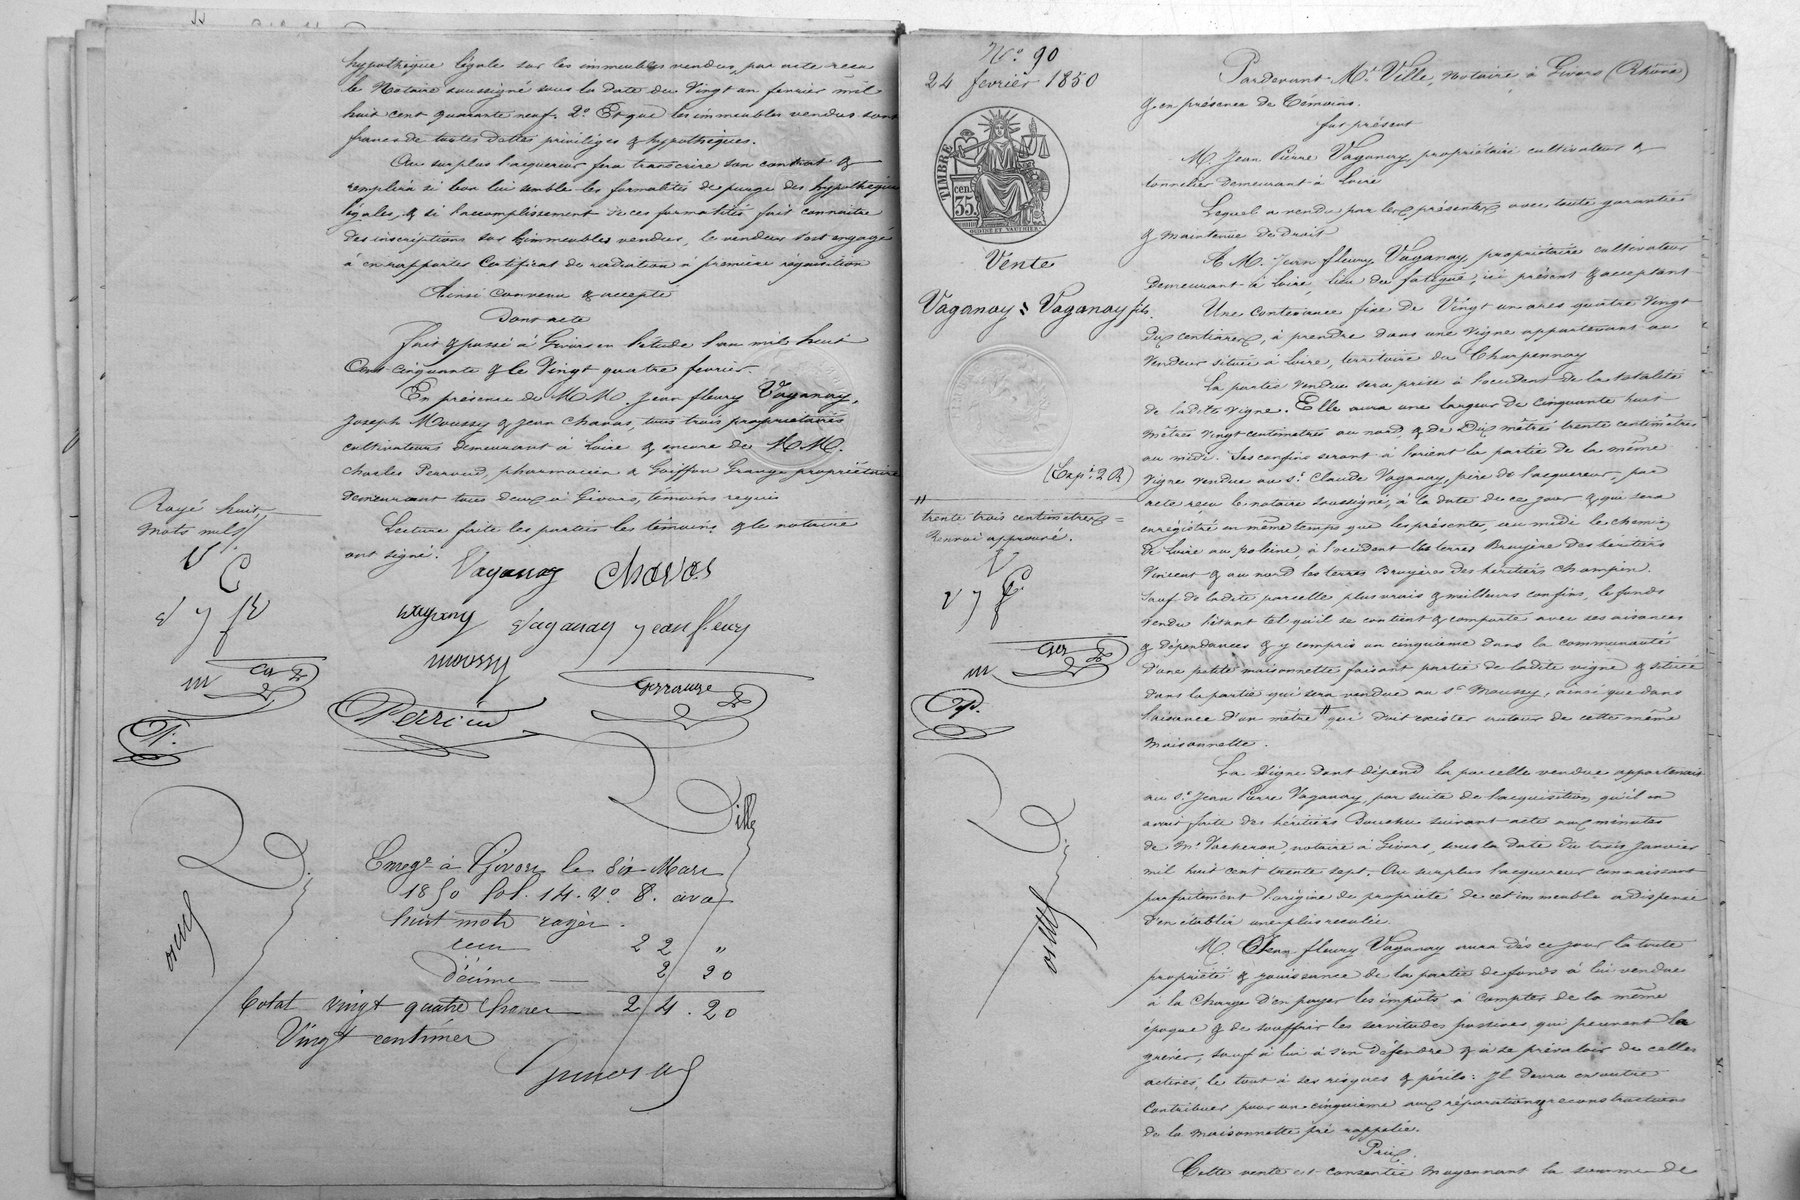 hypothèque légale sur les immeubles vendus, par acte recu
le Notaire soussigné sous la date du Vingt un fevrier mil
huit cent quarante neuf. 2.° Et que les immeubles vendus sont
francs de toutes dettes priviléges & hypothèques.
Au surplus l'acquereur fera transcrire son contrat &
remplira si bon lui semble les formalités de purge des hypothèques
légales, & si l'accomplissement de ces formalités fait connaitre
des inscriptions sur les immeubles vendus, le vendeur s'est engagé
à en rapporter Certificat de radiation à première réquisition
Ainsi convenu & accepté
Dont acte
Fait & passé à Givors en l'étude l'an mil huit
Cent cinquante & le Vingt quatre fevrier.
En présence de M.M. Jean fleury Vaganay,
Joseph Moussy & Jean Chavas, tous trois propriétaires
cultivateurs demeurant à Loire & encore de M.M.
Charles Perroud, pharmacien & Goiffon Grange propriétaire
demeurant tous deux à Givors, témoins requis
Lecture faite les parties les témoins & le notaire
ont signé.
Rayé huit
mots nuls
Vaganay Chavas
Vaganay jean fleury
moussy
Ville
Enreg.é à Givors le six Mars
1850 fol. 14. v.° 8. avec
huit mots rayés.
reçu 22 "
décime 2 20
Total vingt quatre francs 24.20
Vingt centimes
N.° 90
24 fevrier 1850
TIMBRE
35 cen.
Vente
Vaganay à Vaganay fils.
(Exp.n 2 R)
"
trente trois centimètres
Renvoi approuvé.
Pardevant M.e Ville, notaire à Givors (Rhône)
& en présence de Témoins.
fut présent
M. Jean Pierre Vaganay, propriétaire cultivateur &
tonnelier demeurant à Loire
Lequel a vendu par les présentes avec toute garantie
& maintenue de Droit
A M. Jean fleury Vaganay, propriétaire cultivateur
demeurant à Loire, lieu du fatigue, ici présent & acceptant
Une Contenance fixe de Vingt un ares quatre Vingt
dix centiares, à prendre dans une Vigne appartenant au
Vendeur située à Loire, territoire du Charpennay
La partie vendue sera prise à l'occident de la totalité
de ladite vigne. Elle aura une largeur de cinquante huit
mètres vingt centimètres au nord, & de Dix mètres trente centimètres
au midi. Ses confins seront à l'orient la partie de la même
Vigne vendue au s.r Claude Vaganay, père de l'acquereur, par
acte recu le notaire soussigné, à la date de ce jour & qui sera
enregistré en même temps que les présentes, au midi le chemin
de Loire au poleine, à l'occident les terres Bruyère des héritiers
Vincent & au nord les terres Bruyères des héritiers Champin.
Sauf de ladite parcelle plus vrais & meilleurs confins, le fonds
vendu l'étant tel qu'il se contient & comporte avec ses aisances
& dépendances & y compris un cinquième dans la communauté
d'une petite maisonnette faisant partie de ladite vigne & située
dans la partie qui sera vendue au s.r Moussy, ainsi que dans
l'aisance d'un mètre " qui doit exister autour de cette même
maisonnette.
La Vigne dont dépend la parcelle vendue appartenait
au s.r Jean Pierre Vaganay, par suite de l'acquisition qu'il en
avait faite des héritiers Bouchu suivant acte aux minutes
de M.e Vacheron, notaire à Givors, sous la date du trois Janvier
mil huit cent trente sept. Au surplus l'acquereur connaissant
parfaitement l'origine de propriété de cet immeuble a dispensé
d'en établir une plus reculée.
M. Jean fleury Vaganay aura dès ce jour la toute
propriété & jouissance de la partie de fonds à lui vendue
à la Charge d'en payer les impots à compter de la même
époque & de souffrir les servitudes passives qui peuvent la
grever, sauf à lui à s'en défendre & à se prévaloir de celles
actives, le tout à ses risques & périls: Il devra en outre
contribuer pour un cinquième aux réparations & reconstructions
de la maisonnette pré rappelée.
Prix.
Cette vente est consentie moyennant la somme de